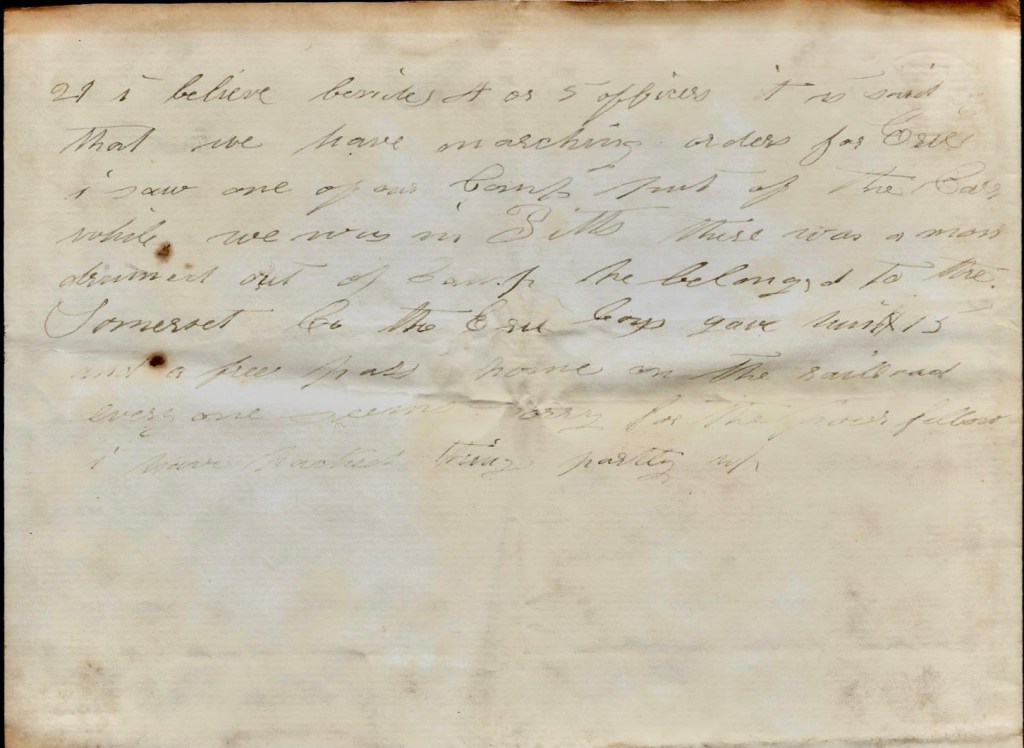 21 i believe besides 4 or 5 officers it is said
that we have marching orders for Erie
i saw one of our Comp put of the Cars
while we was in Pitts there was a man
drumed out of Camp he belonged to the
Somerset Co the Erie boys gave him $15
and a free pass home on the railroad
every one seems sorry for the poor fellow
i have thing partly up